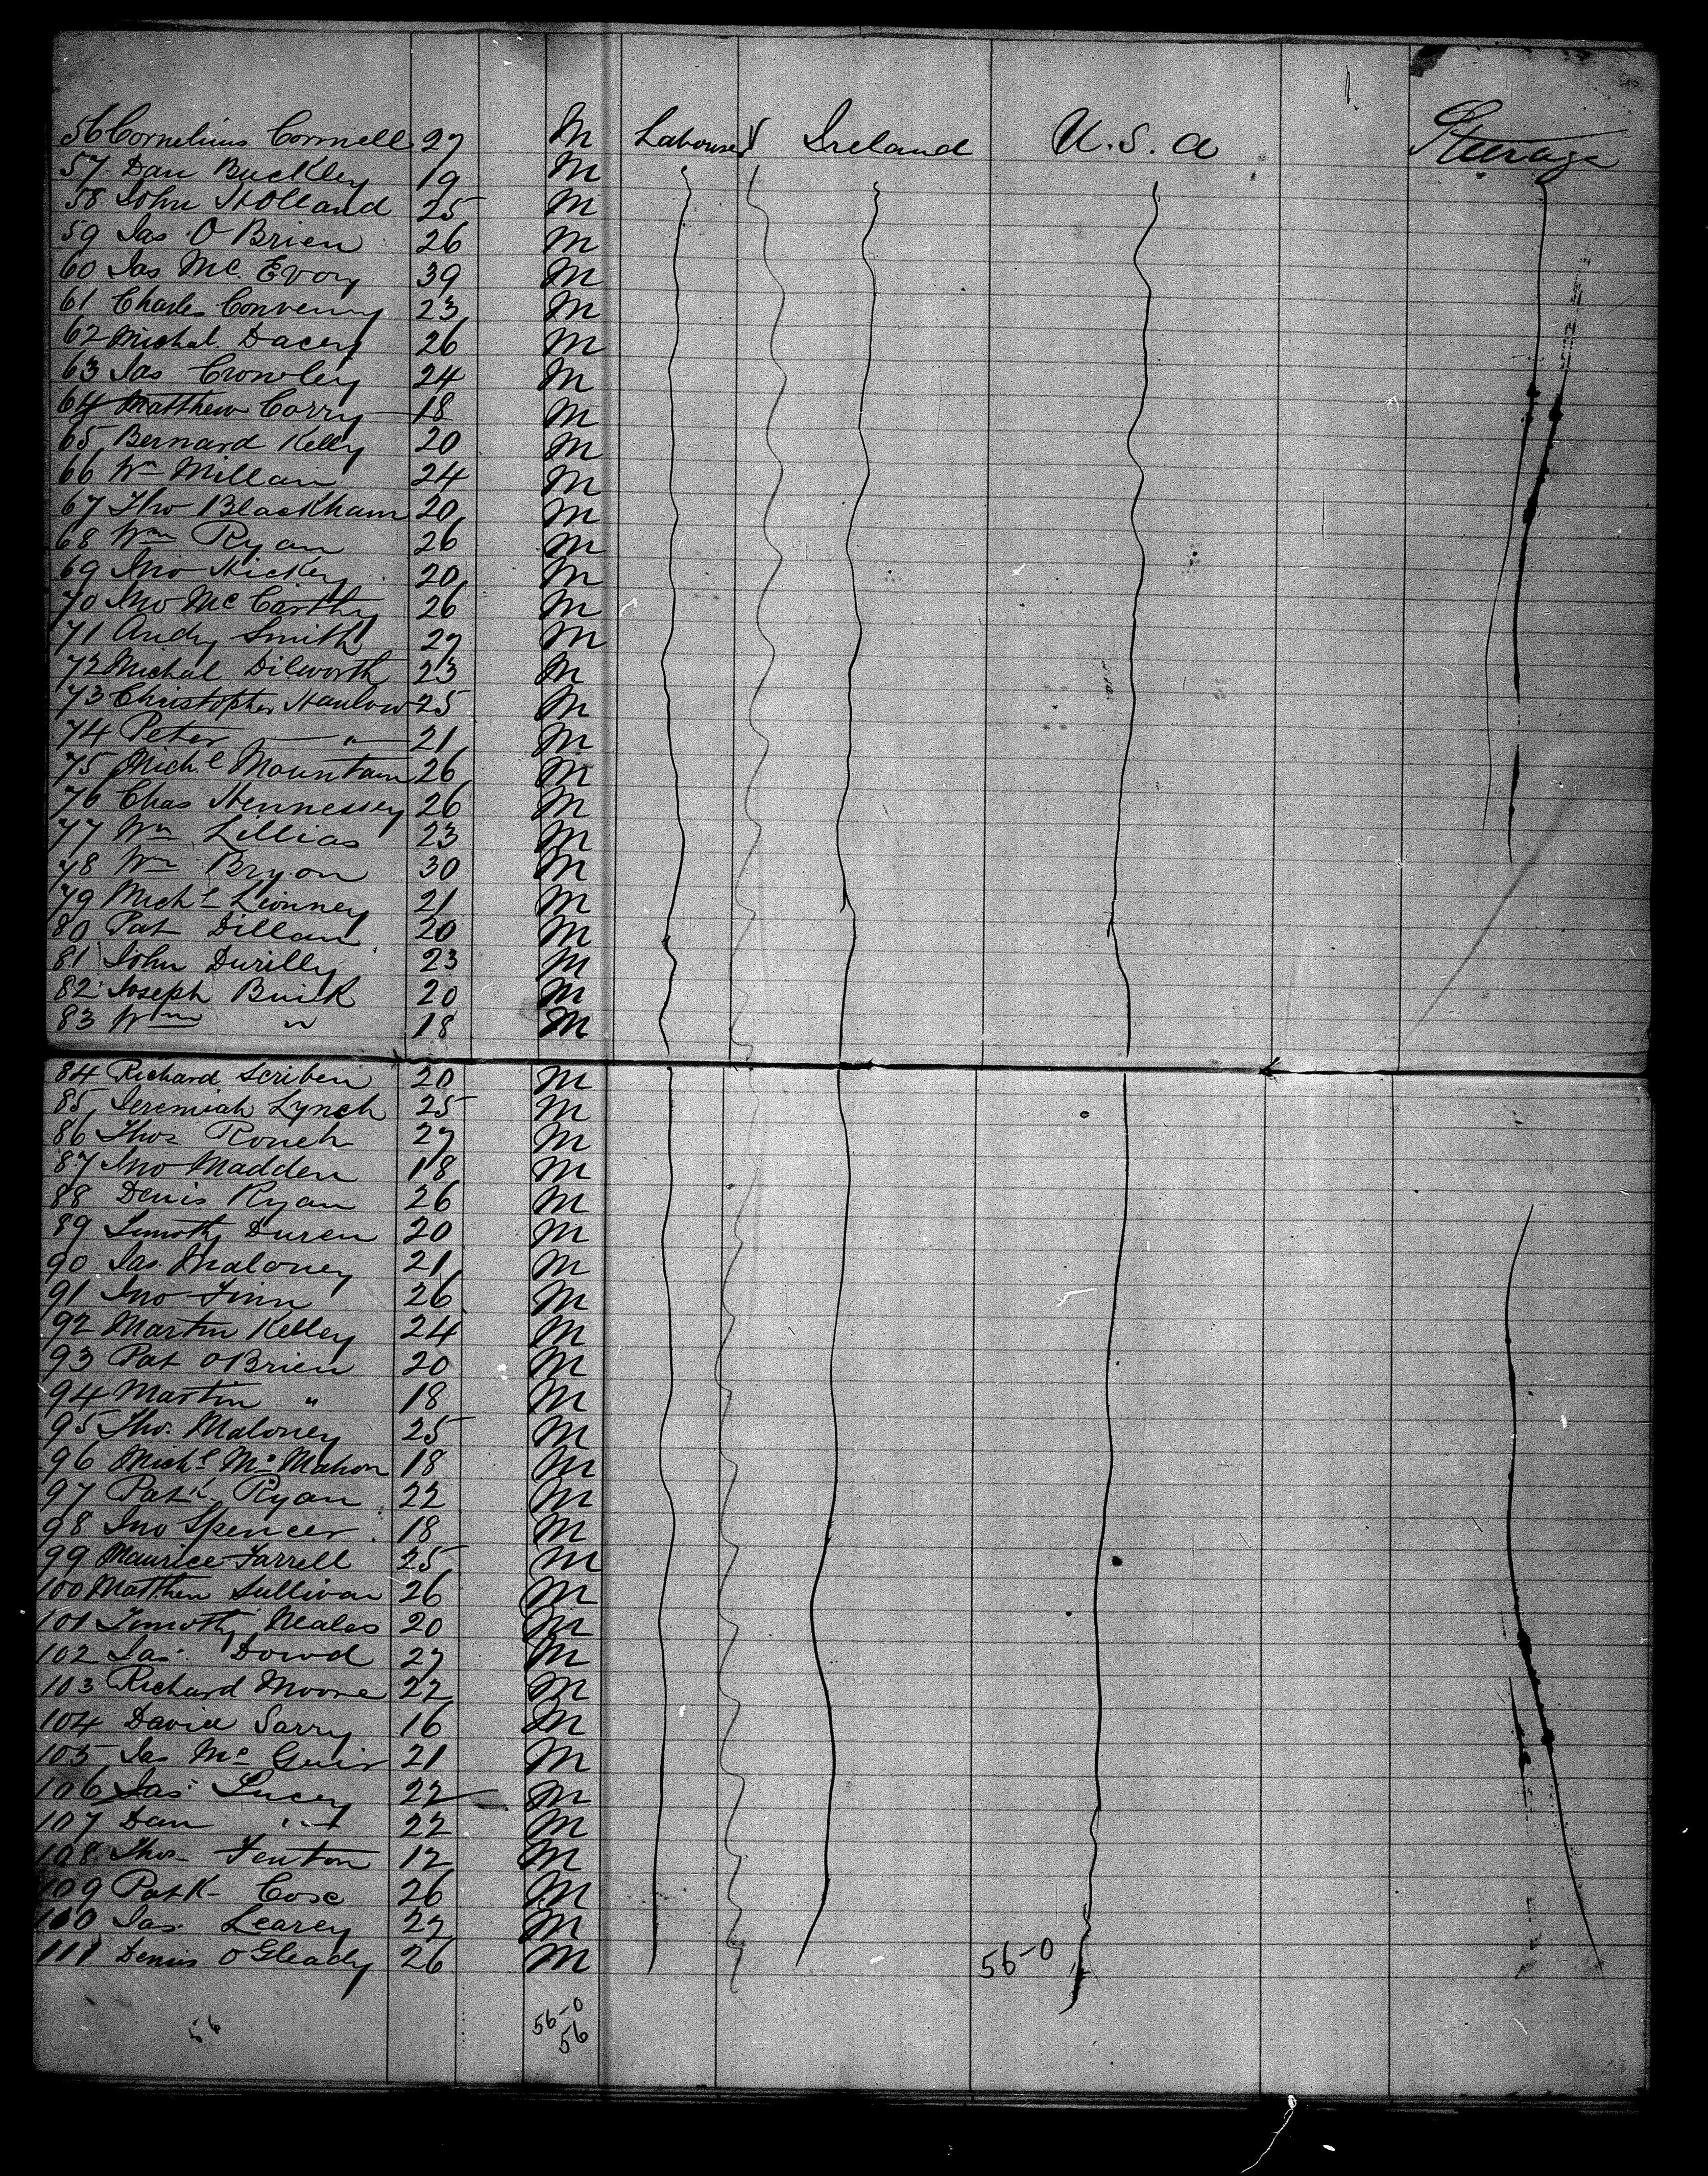 56 Cornelius Connell 27 M Labourer Ireland U.S.a Steerage
57 Dan Buckley 19 M
58 John Holland 25 M
59 Jas O Brien 26 M
60 Jas Mc. Evoy 39 M
61 Charles Conveny 23 M
62 Michal Dacey 26 M
63 Jas Crowley 24 M
64 Matthew Corry 18 M
65 Bernard Kelly 20 M
66 Wm Millan 24 M
67 Tho Blackham 20 M
68 Wm Ryan 26 M
69 Jno Hickey 20 M
70 Jno Mc Carthy 26 M
71 Andy Smith 27 M
72 Michal Dilworth 23 M
73 Christopher Hanlow 25 M
74 Peter — " — 21 M
75 Michl Mountain 26 M
76 Chas Hennessey 26 M
77 Wm Lillias 23 M
78 Wm Bryon 30 M
79 Michl Linney 21 M
80 Pat Dillan 20 M
81 John Durilly 23 M
82 Joseph Buik 20 M
83 Wm " 18 M
84 Richard Scriben 20 M
85 Jeremiah Lynch 25 M
86 Thos Rouch 27 M
87 Jno Madden 18 M
88 Denis Ryan 26 M
89 Timothy Duren 20 M
90 Jas. Maloney 21 M
91 Jno Finn 26 M
92 Martin Kelley 24 M
93 Pat OBrien 20 M
94 Martin " 18 M
95 Tho. Maloney 25 M
96 Michl Mc Mahon 18 M
97 Patk Ryan 22 M
98 Jno Spencer 18 M
99 Maurice Farrell 25 M
100 Matthew Sullivan 26 M
101 Timothy Neales 20 M
102 Jas. Dowd 27 M
103 Richard Moore 22 M
104 David Sarry 16 M
105 Jas Mc Guir 21 M
106 Jas Lucey 22 M
107 Dan " 22 M
108 Thos Fenton 12 M
109 Patk Cose 26 M
110 Jas. Learey 22 M
111 Denis O Gleady 26 M 56-0
56 56-0
56